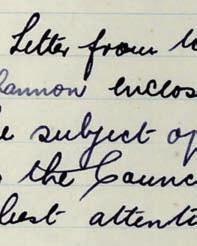 Letter from
hannon enclos
e subject of
s the Counc
best attenti